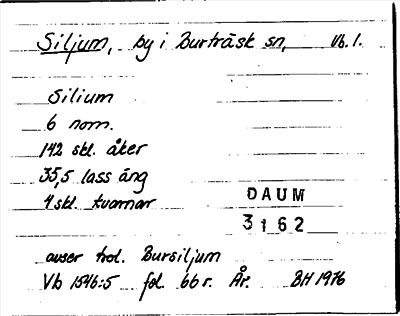 Siljum, by i Burträsk sn, Vb. l.
Silium
6 nom.
142 skl. åker
35,5 lass äng
4 skl. kvarnar
DAUM
3162
avser trol. Bursiljum
Vb 1546:5 fol. 66 r. År. BH 1976